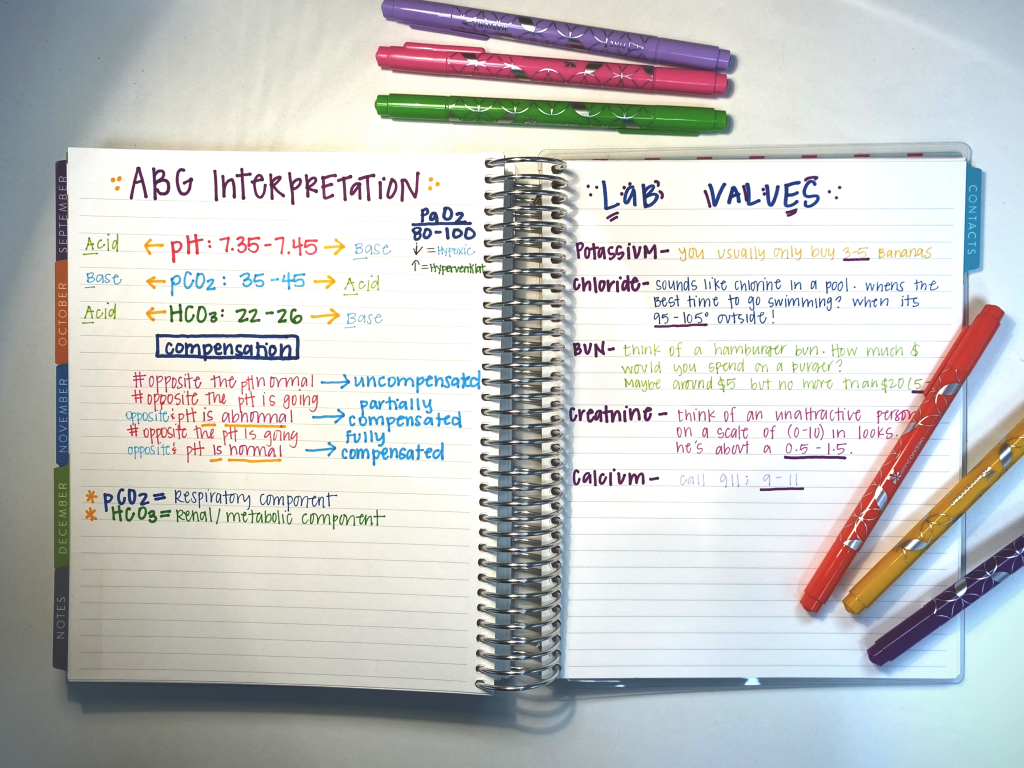 SEPTEMBER
OCTOBER
NOVEMBER
DECEMBER
NOTES
ABG INTERPRETATION
PaO2
80-100
↓ = Hypoxic
↑ = Hyperventilat
Acid ← pH: 7.35-7.45 → Base
Base ← pCO2: 35-45 → Acid
Acid ← HCO3: 22-26 → Base
compensation
# opposite the pH normal → uncompensated
# opposite the pH is going
opposite & pH is abnormal → partially compensated
# opposite the pH is going
opposite & pH is normal → fully compensated
* pCO2 = Respiratory component
* HCO3 = Renal/metabolic component
LAB VALUES
CONTACTS
Potassium - you usually only buy 3-5 Bananas
Chloride - sounds like chlorine in a pool. whens the
Best time to go swimming? when its
95-105° outside!
BUN - think of a hamburger bun. How much $
would you spend on a burger?
Maybe around $5 but no more than $20 (5-
Creatnine - think of an unattractive person
on a scale of (0-10) in looks.
he's about a 0.5-1.5.
Calcium - call 911: 9-11